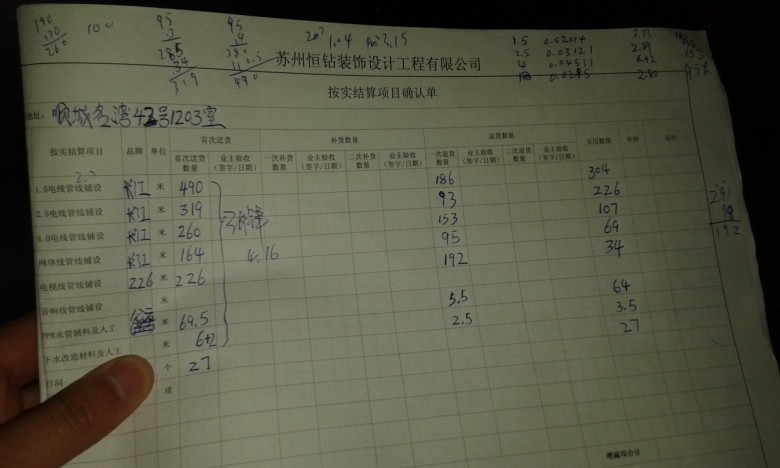 190
170
260
100
95
.3
285
34
319
95
.4
380
110
490
1.5 0.02014
2.5 0.03121
4 0.04511
0.0295 2.80
苏州恒钻装饰设计工程有限公司
按实结算项目确认单
地址: 42号1203室
按实结算项目 品牌 单位 首次送货 补货数量 退货数量 实用数量 单价 合计
首次送货数量 业主验收(签字/日期) 一次补货数量 业主验收(签字/日期) 二次补货数量 业主验收(签字/日期) 一次退货数量 业主验收(签字/日期) 二次退货数量 业主验收(签字/日期)
1.5电线管线铺设 长江 米 490 186 304
2.5电线管线铺设 长江 米 319 93 226
4.0电线管线铺设 长江 米 260 153 107
网络线管线铺设 长江 米 164 4.16 95 69
电视线管线铺设 226 米 226 192 34
音响线管线铺设 米
PPR水管辅料及人工 米 69.5 5.5 64
下水改造材料及人工 米 6+2 2.5 3.5
打洞 个 27 27
项
291
99
192
增减项合计